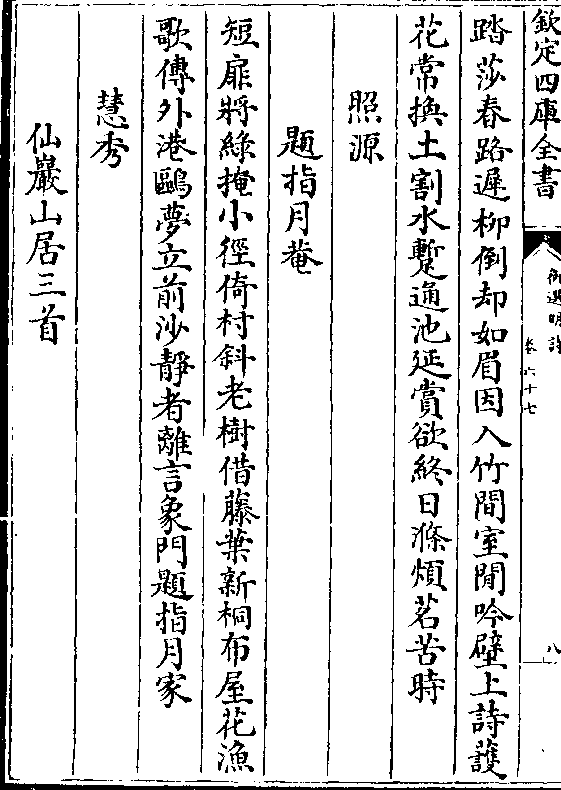 欽定四庫全書
御選明詩
卷六十七
八
踏莎春路遲柳倒却如眉因入竹間室閒吟壁上詩護
花常換土割水蹔通池延賞欲終日滌煩茗苦時
照源
題指月菴
短扉將綠掩小徑倚村斜老樹借藤葉新桐布屋花漁
歌傳外港鷗夢立前沙靜者離言象門題指月家
慧秀
仙巖山居三首